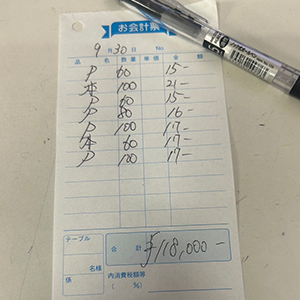 お会計票
9月30日 No.
品名 数量 単価 金額
P 60 15-
本 100 21-
P 60 15-
P 80 16-
P 100 17-
本 60 17-
P 100 17-
テーブル
名様
係
合計 ¥118,000-
内消費税額等
( %)